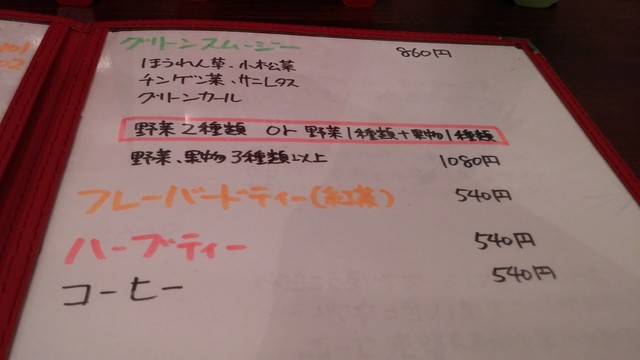 201
02
グリーンスムージー 860円
ほうれん草、小松菜
チンゲン菜、サニーレタス
グリーンカール
野菜2種類 or 野菜1種類+果物1種類
野菜、果物3種類以上 1080円
フレーバードティー(紅茶) 540円
ハーブティー 540円
コーヒー 540円